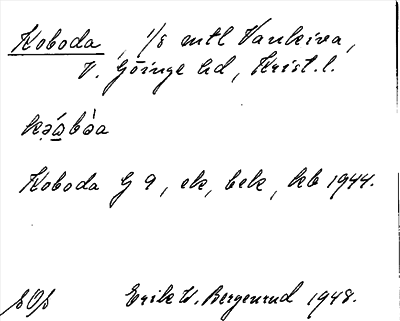 Koboda, 1/8 mtl Vankiva,
V. Göinge hd, Krist. l.
Koboda G 9, ek, bek, kb 1944.
Erik W. Bergenrud 1948.